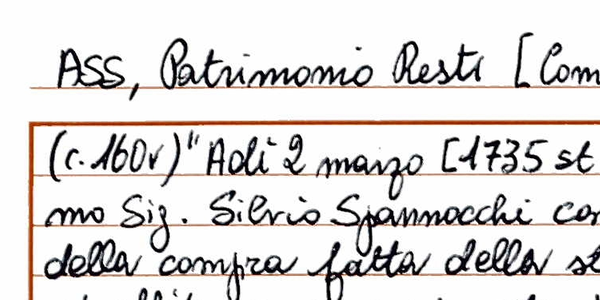 ASS, Patrimonio Resti [Com
(c.160v) "Adì 2 marzo [1735 st
mo Sig. Silvio Spannocchi con
della compra fatta della st